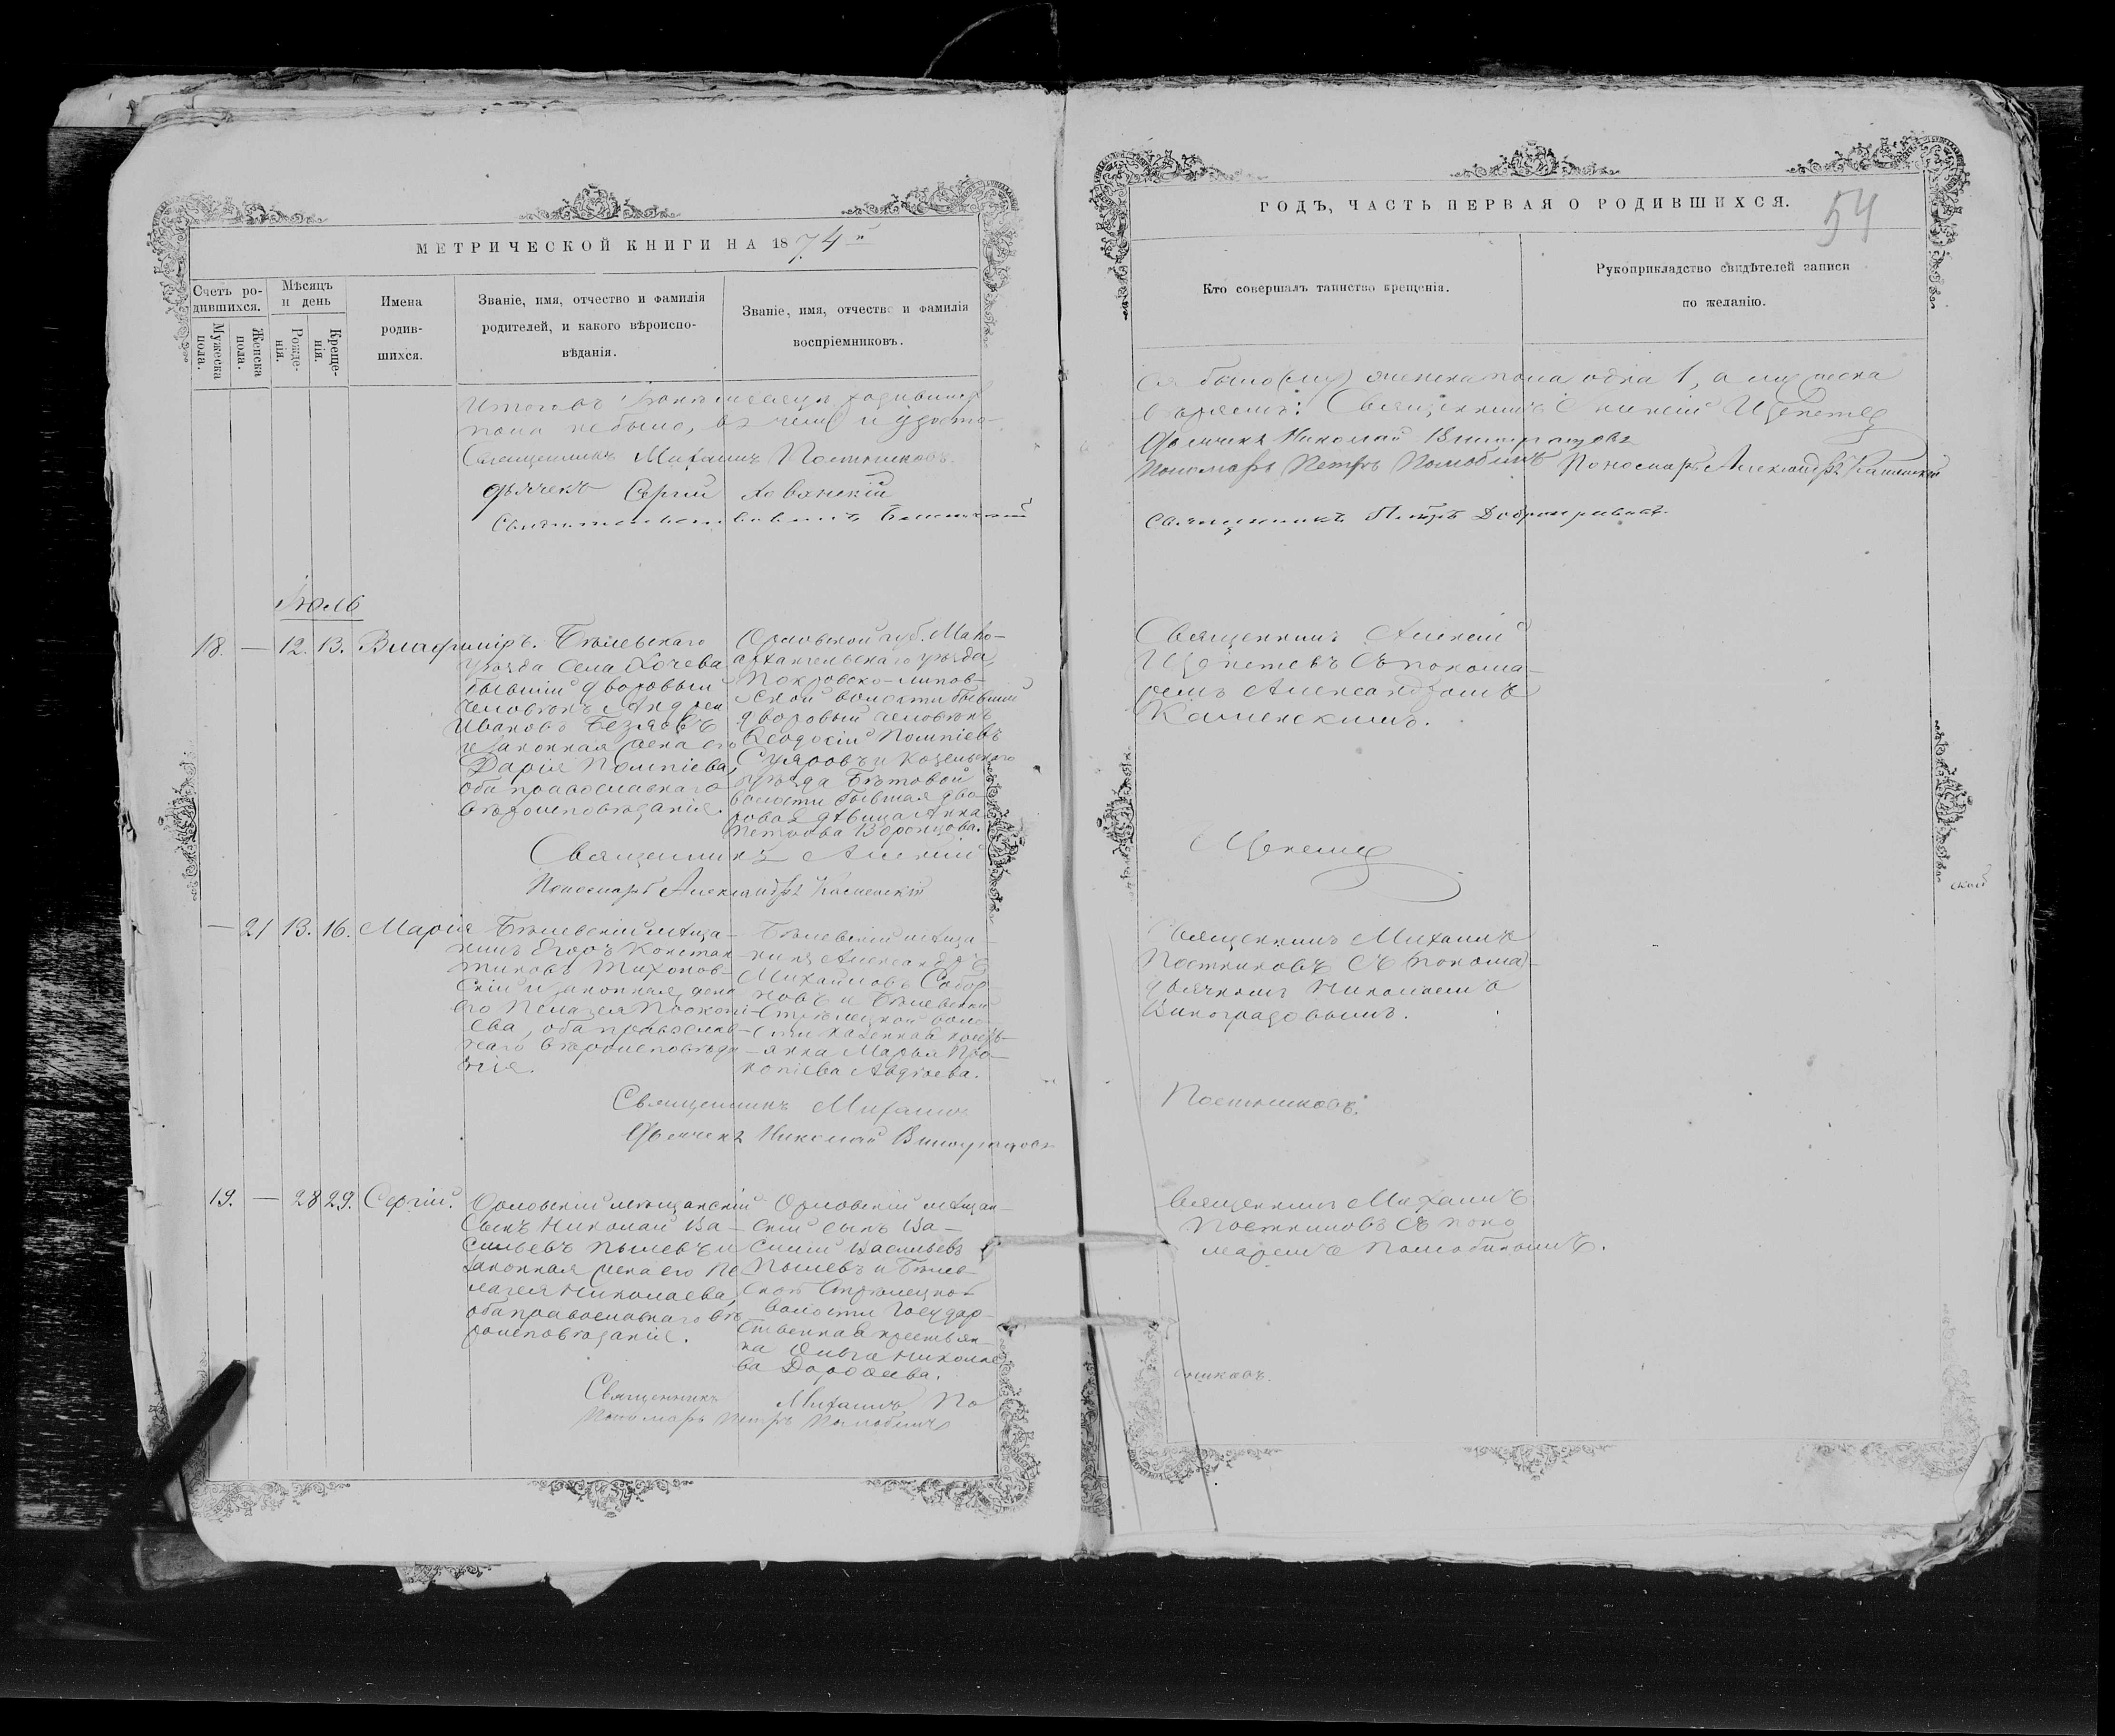 МЕТРИЧЕСКОЙ КНИГИ НА 1874 й
Счетъ ро-
дившихся.
Мужеска
пола.
Женска
пола.
Мѣсяцъ
и день
Рожде-
нія.
Креще-
нія.
Имена
родив-
шихся.
Званіе, имя, отчество и фамилія
родителей, и какого вѣроиспо-
вѣданія.
Званіе, имя, отчество и фамилія
воспріемниковъ.
Итого въ Іюнѣ мѣсяцѣ родивших
пола не было, въ чемъ и удосто-
Священникъ Михаилъ Постниковъ.
Дьячекъ Сергій Хованскій
Іюль
18. — 12. 13. Владиміръ.
Бѣлевскаго
уѣзда села Хочева
бывшій дворовый
человѣкъ Андрей
Ивановъ Безяевъ
и законная жена его
Дарія Помпіева,
оба православнаго
вѣроисповѣданія.
Орловской губ. Мало-
архангельскаго уѣзда,
Покровско-Липов-
ской волости бывшій
дворовый человѣкъ
Ѳеодосій Помпіевъ
и Козельскаго
уѣзда Бѣтовой
волости бывшая дво-
ровая дѣвица Анна
Петрова Воронцова.
Священникъ Алексій
Пономарь Александръ Каменскій
— 21 13. 16. Марія
Бѣлевскій мѣща-
нинъ Егоръ Констан-
тиновъ Тихонов-
скій и законная жена
его Пелагея Прокопі-
ева, оба православ-
наго вѣроисповѣда-
нія.
Бѣлевскій мѣща-
нинъ Александръ
Михайловъ Собор-
новъ и Бѣлевской
Стрѣлецкой воло-
сти казенная кресть-
янка Марья Про-
копіева Авдѣева.
Священникъ Михаилъ
Дьячекъ Николай Виноградовъ
19. — 28 29. Сергій.
Орловскій мѣщанскій
сынъ Николай Ва-
сильевъ Пылевъ и
законная жена его Пе-
лагея Николаева,
оба православнаго вѣ-
роисповѣданія.
Орловскій мѣщан-
скій сынъ Ва-
силій Васильевъ
Пылевъ и Бѣлев-
ской Стрѣлецкой
волости Государ-
ственная крестьян-
ка Ольга Николае
ва Дороѳеева.
Священникъ Михаилъ По
Пономарь Петръ Полюбинъ
ГОДЪ, ЧАСТЬ ПЕРВАЯ О РОДИВШИХСЯ.
54
Кто совершалъ таинство крещенія.
Рукоприкладство свидѣтелей записи
по желанію.
ся было женска пола одна 1, а мужеска
вѣряемъ: Священникъ Алексій Щепетев
Дьячекъ Николай Виноградовъ
Пономарь Петръ Полюбинъ Пономарь Александръ Каменскій
Священникъ Петръ Добронравовъ
Священникъ Алексій
Щепетевъ съ понома-
ремъ Александромъ
Каменскимъ.
Щепетев
Священникъ Михаилъ
Постниковъ съ
дьячкомъ Николаемъ
Виноградовымъ.
Постниковъ.
Священникъ Михаилъ
Постниковъ съ поно
маремъ Полюбинымъ.
стниковъ.